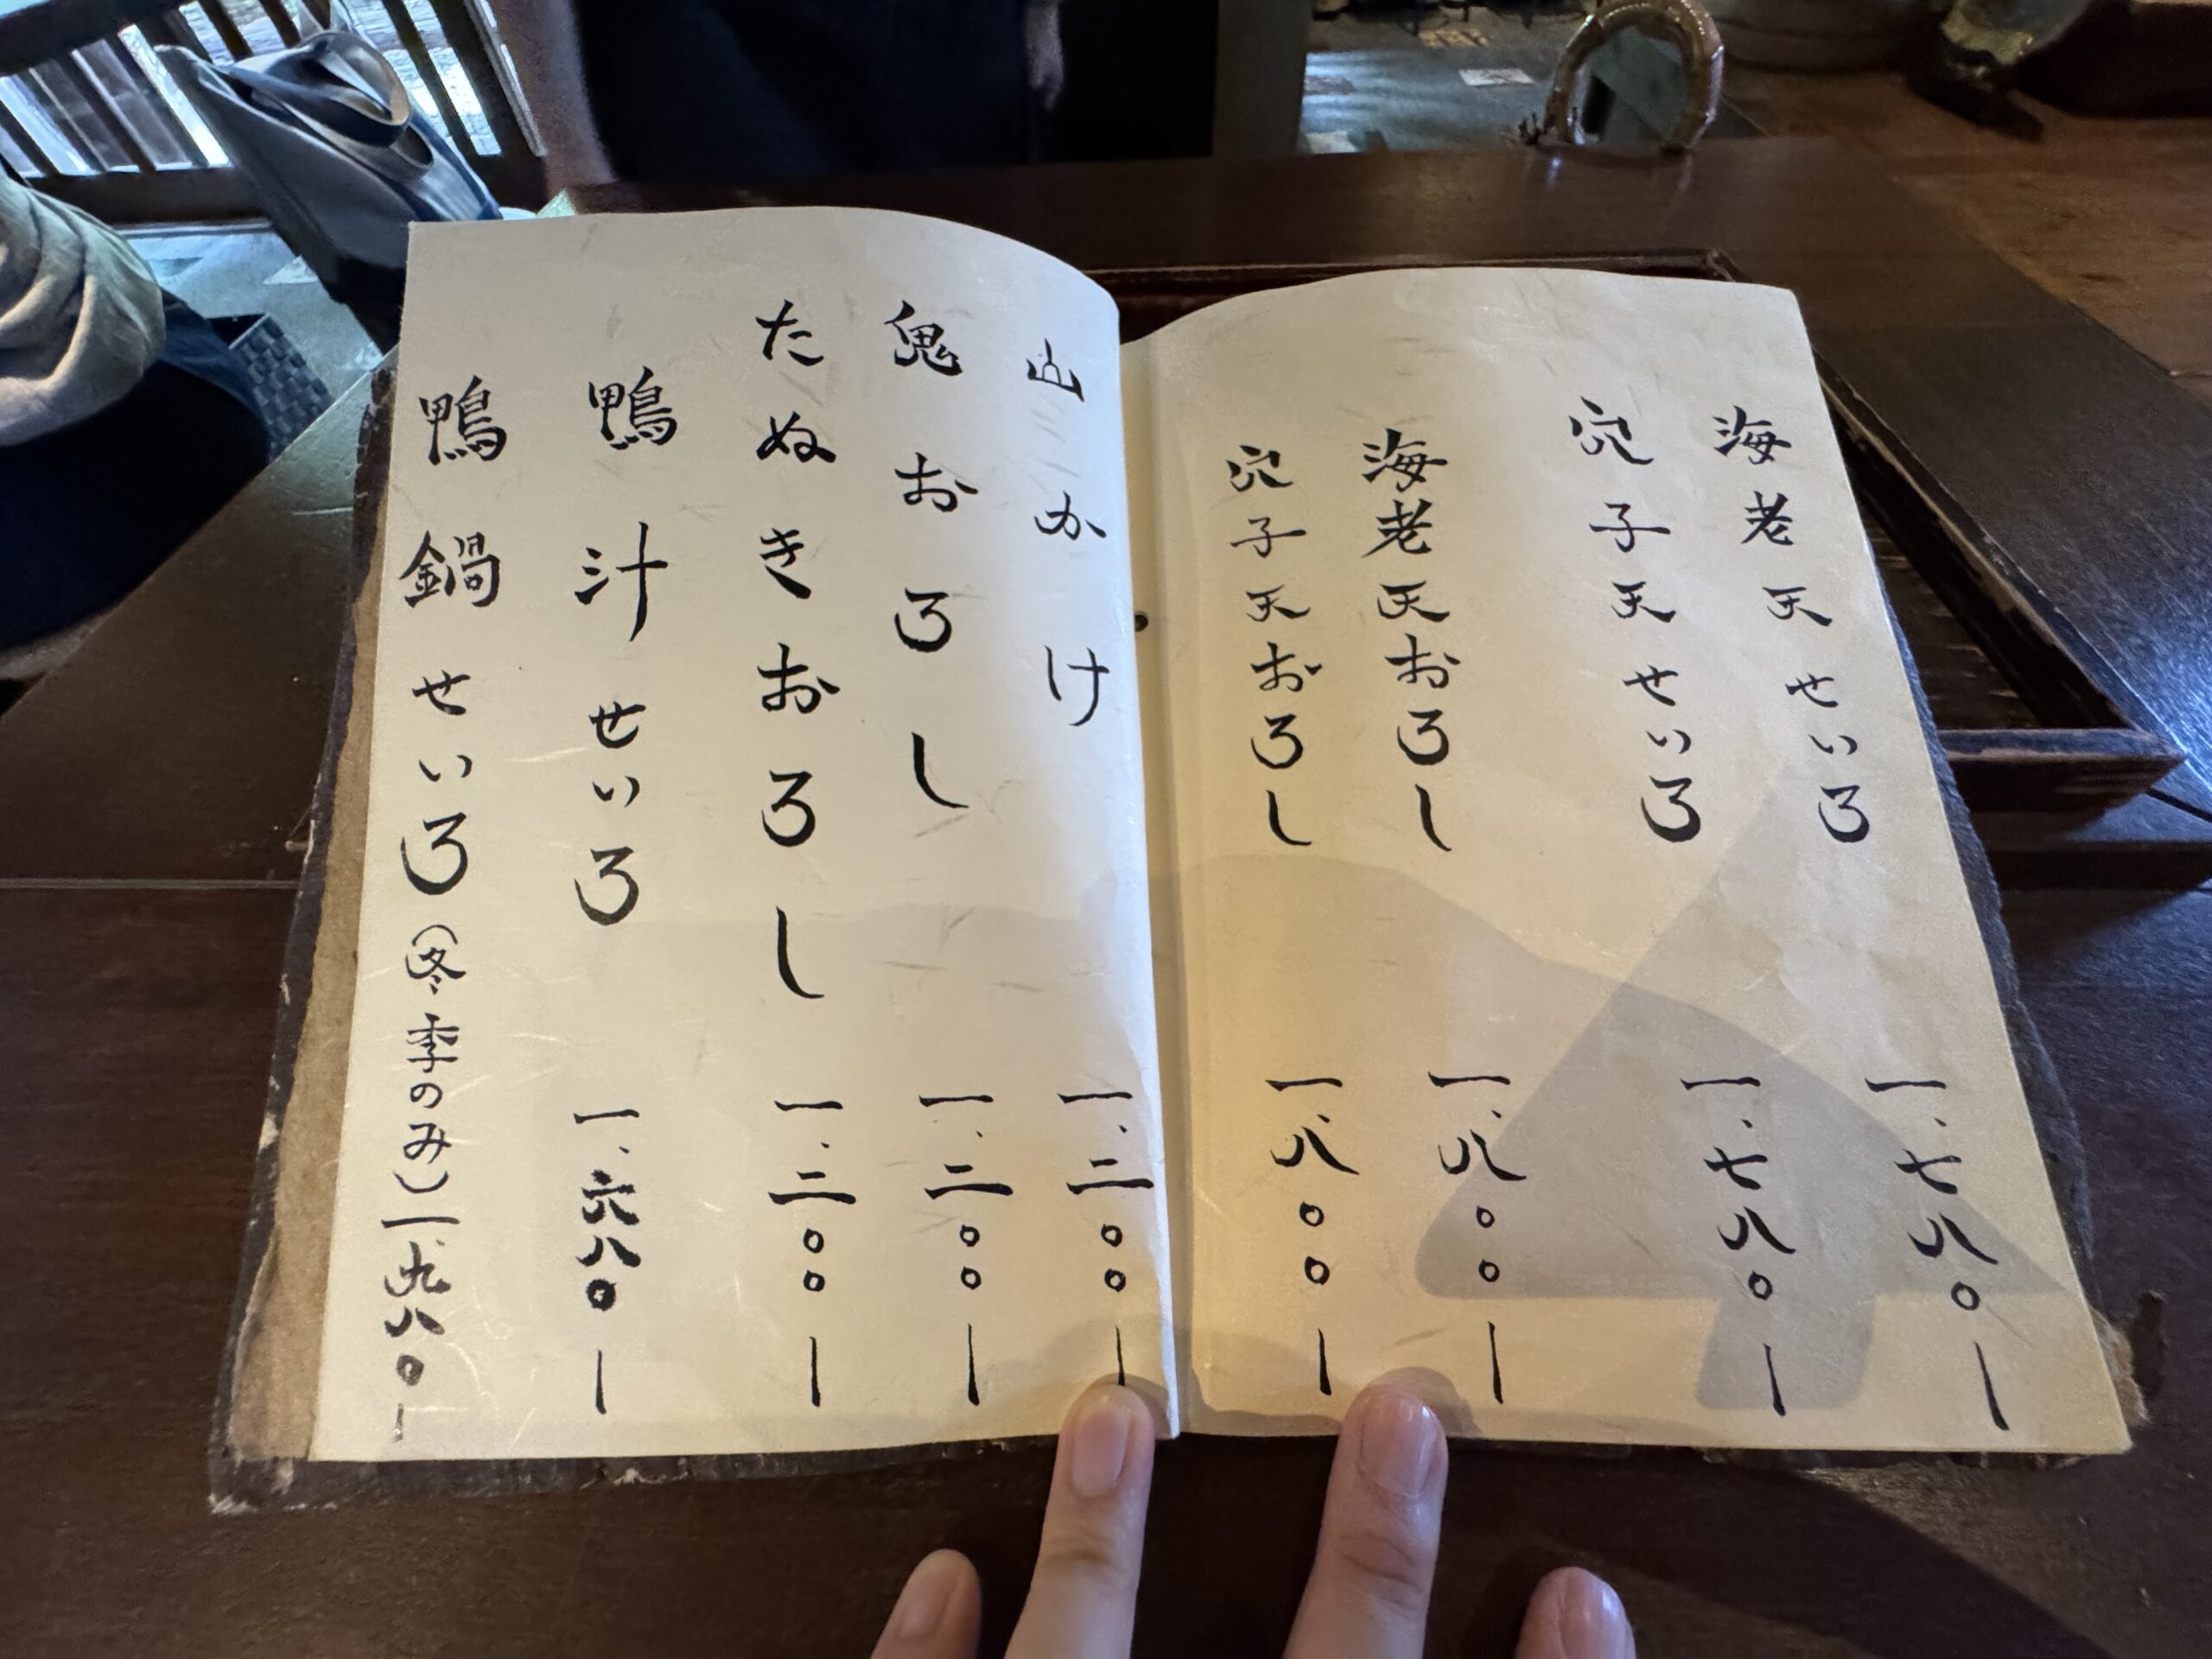 海老天せいろ 一、七八〇ー
穴子天せいろ 一、七八〇ー
海老天おろし 一、八〇〇ー
穴子天おろし 一、八〇〇ー
山かけ 一、二〇〇ー
鬼おろし 一、二〇〇ー
たぬきおろし 一、二〇〇ー
鴨汁せいろ 一、六八〇ー
鴨鍋せいろ(冬季のみ)一、九八〇ー